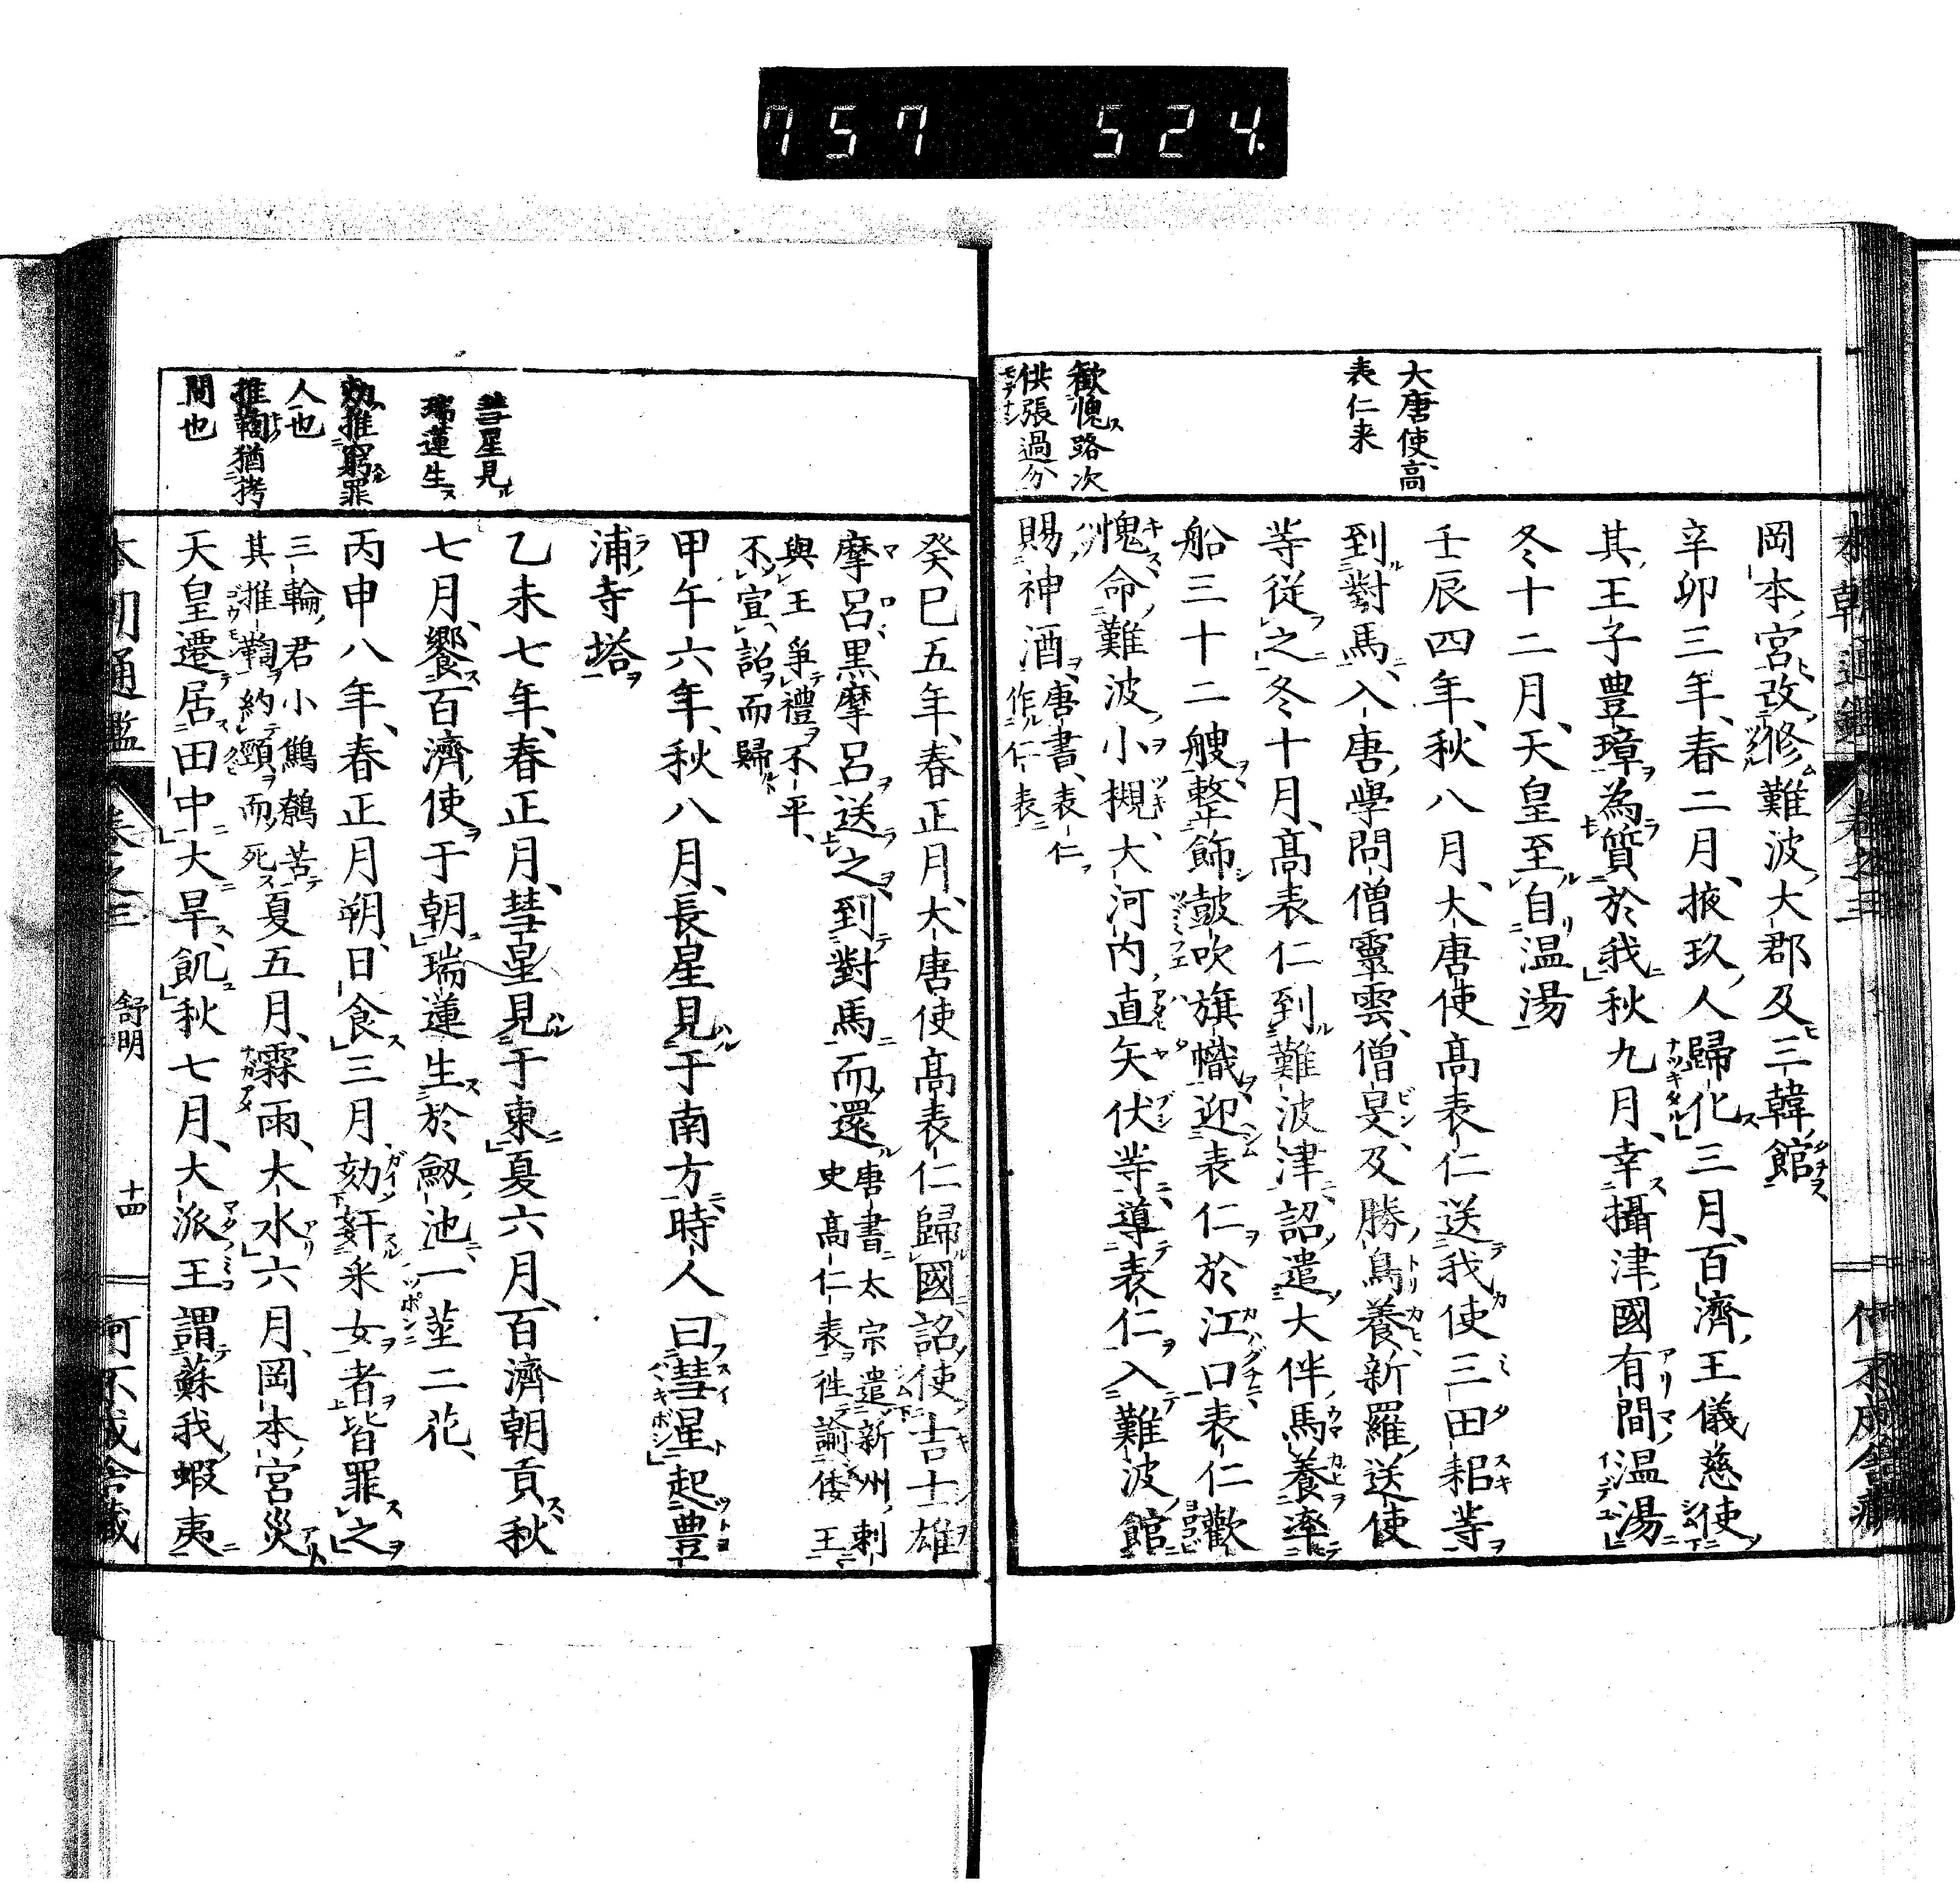 757 524
大唐使高
表仁来
歡愧路次
供張過分
岡本宮改修難波大郡及三韓館
辛卯三年春二月掖玖人歸化三月百濟王儀慈使
其王子豊璋為質於我秋九月幸攝津國有間温湯
冬十二月天皇至自温湯
壬辰四年秋八月大唐使高表仁送我使三田耜等
到對馬入唐學問僧靈雲僧旻及勝鳥養新羅送使
等從之冬十月高表仁到難波津詔遣大伴馬養率
船三十二艘整飾鼓吹旗幟迎表仁於江口表仁歡
愧命難波小槻大河内直矢伏等導表仁入難波館
賜神酒唐書表仁
作仁表
彗星見
瑞蓮生
劾推窮罪
人也
推鞫猶拷
問也
癸巳五年春正月大唐使高表仁歸國詔使吉士雄
摩呂黒摩呂送之到對馬而還唐書太宗遣新州刺
史高仁表往諭倭王
與王爭禮不平
不宣詔而歸
甲午六年秋八月長星見于南方時人曰彗星起豊
浦寺塔
乙未七年春正月彗星見于東夏六月百濟朝貢秋
七月饗百濟使于朝瑞蓮生於劔池一莖二花
丙申八年春正月朔日食三月劾奸采女者皆罪之
三輪君小鷦鷯苦
其推鞫約頸而死夏五月霖雨大水六月岡本宮災
天皇遷居田中大旱飢秋七月大派王謂蘇我蝦夷
本朝通鑑 卷之三 舒明 十四